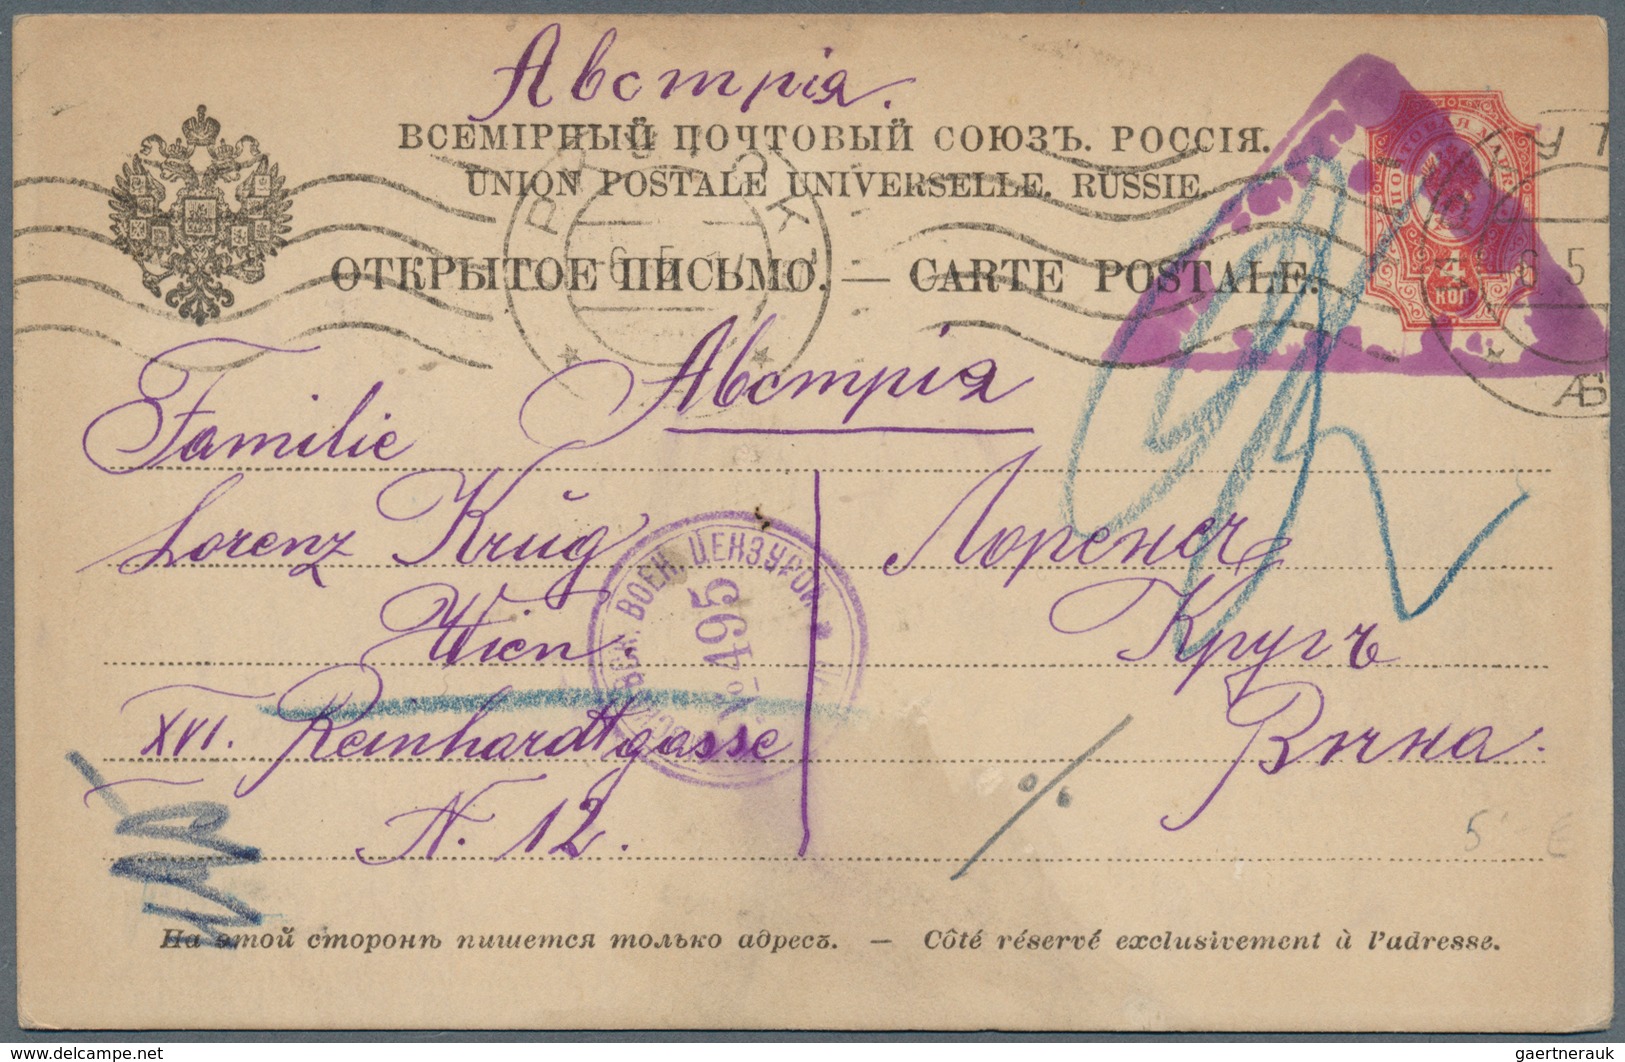 Австрія.
ВСЕМІРНЫЙ ПОЧТОВЫЙ СОЮЗЪ. РОССІЯ.
UNION POSTALE UNIVERSELLE. RUSSIE.
ОТКРЫТОЕ ПИСЬМО. — CARTE POSTALE.
ПОЧТОВАЯ МАРКА
4
КОП
6 5
6 5
Австрія
Familie
Lorenz Krüg
Wien
XVI. Reinhardtgasse
N. 12.
Лоренсъ
Кругъ
Вѣна.
ВОЕН. ЦЕНЗУРОЙ
№ 495
%
5
На этой сторонѣ пишется только адресъ. — Côté réservé exclusivement à l'adresse.
www.delcampe.net
gaertnerauk